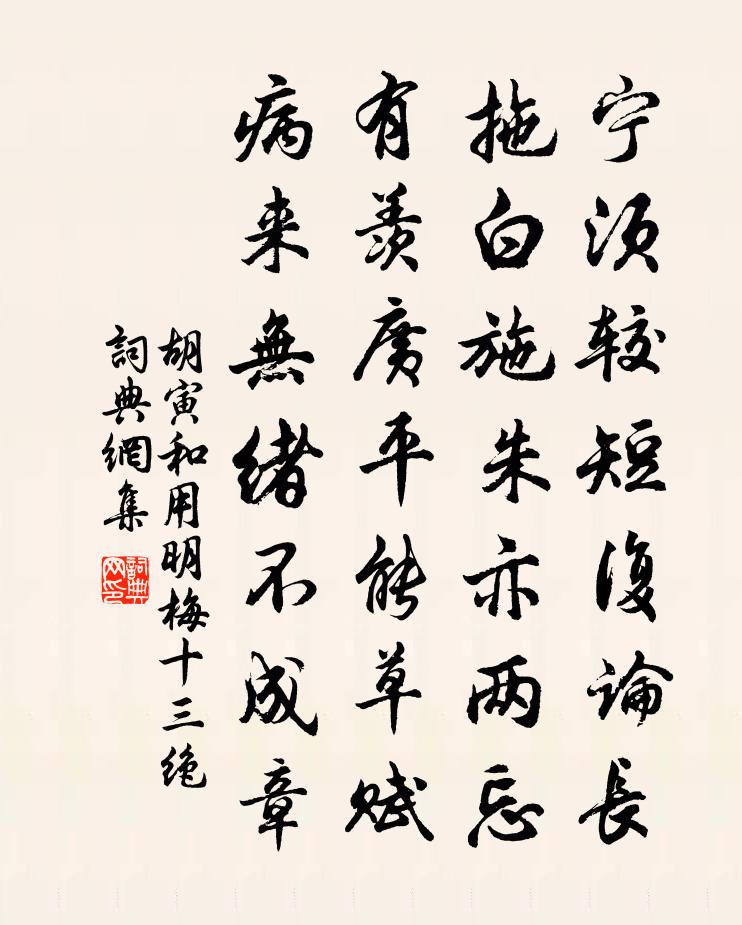 宁须较短復論長
拖白施朱亦两忘
有羨廣平能草赋
病来無緒不成章
胡寅和用明梅十三绝
詞典網集
詞典网印